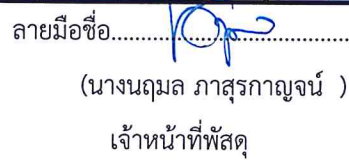 ลายมือชื่อ...................................
(นางนฤมล ภาสุรกาญจน์ )
เจ้าหน้าที่พัสดุ